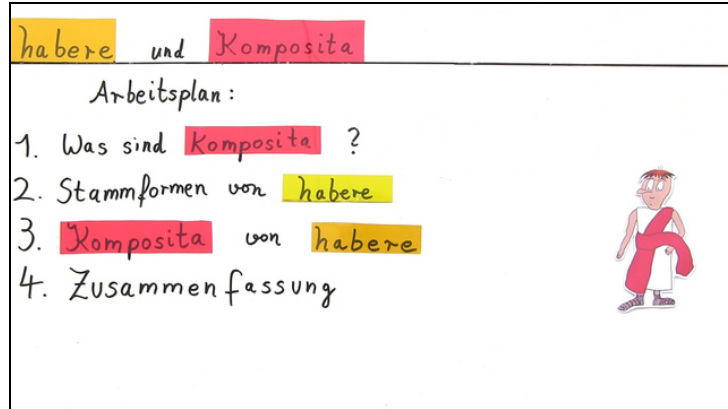 habere und Komposita
Arbeitsplan:
1. Was sind Komposita ?
2. Stammformen von habere
3. Komposita von habere
4. Zusammenfassung